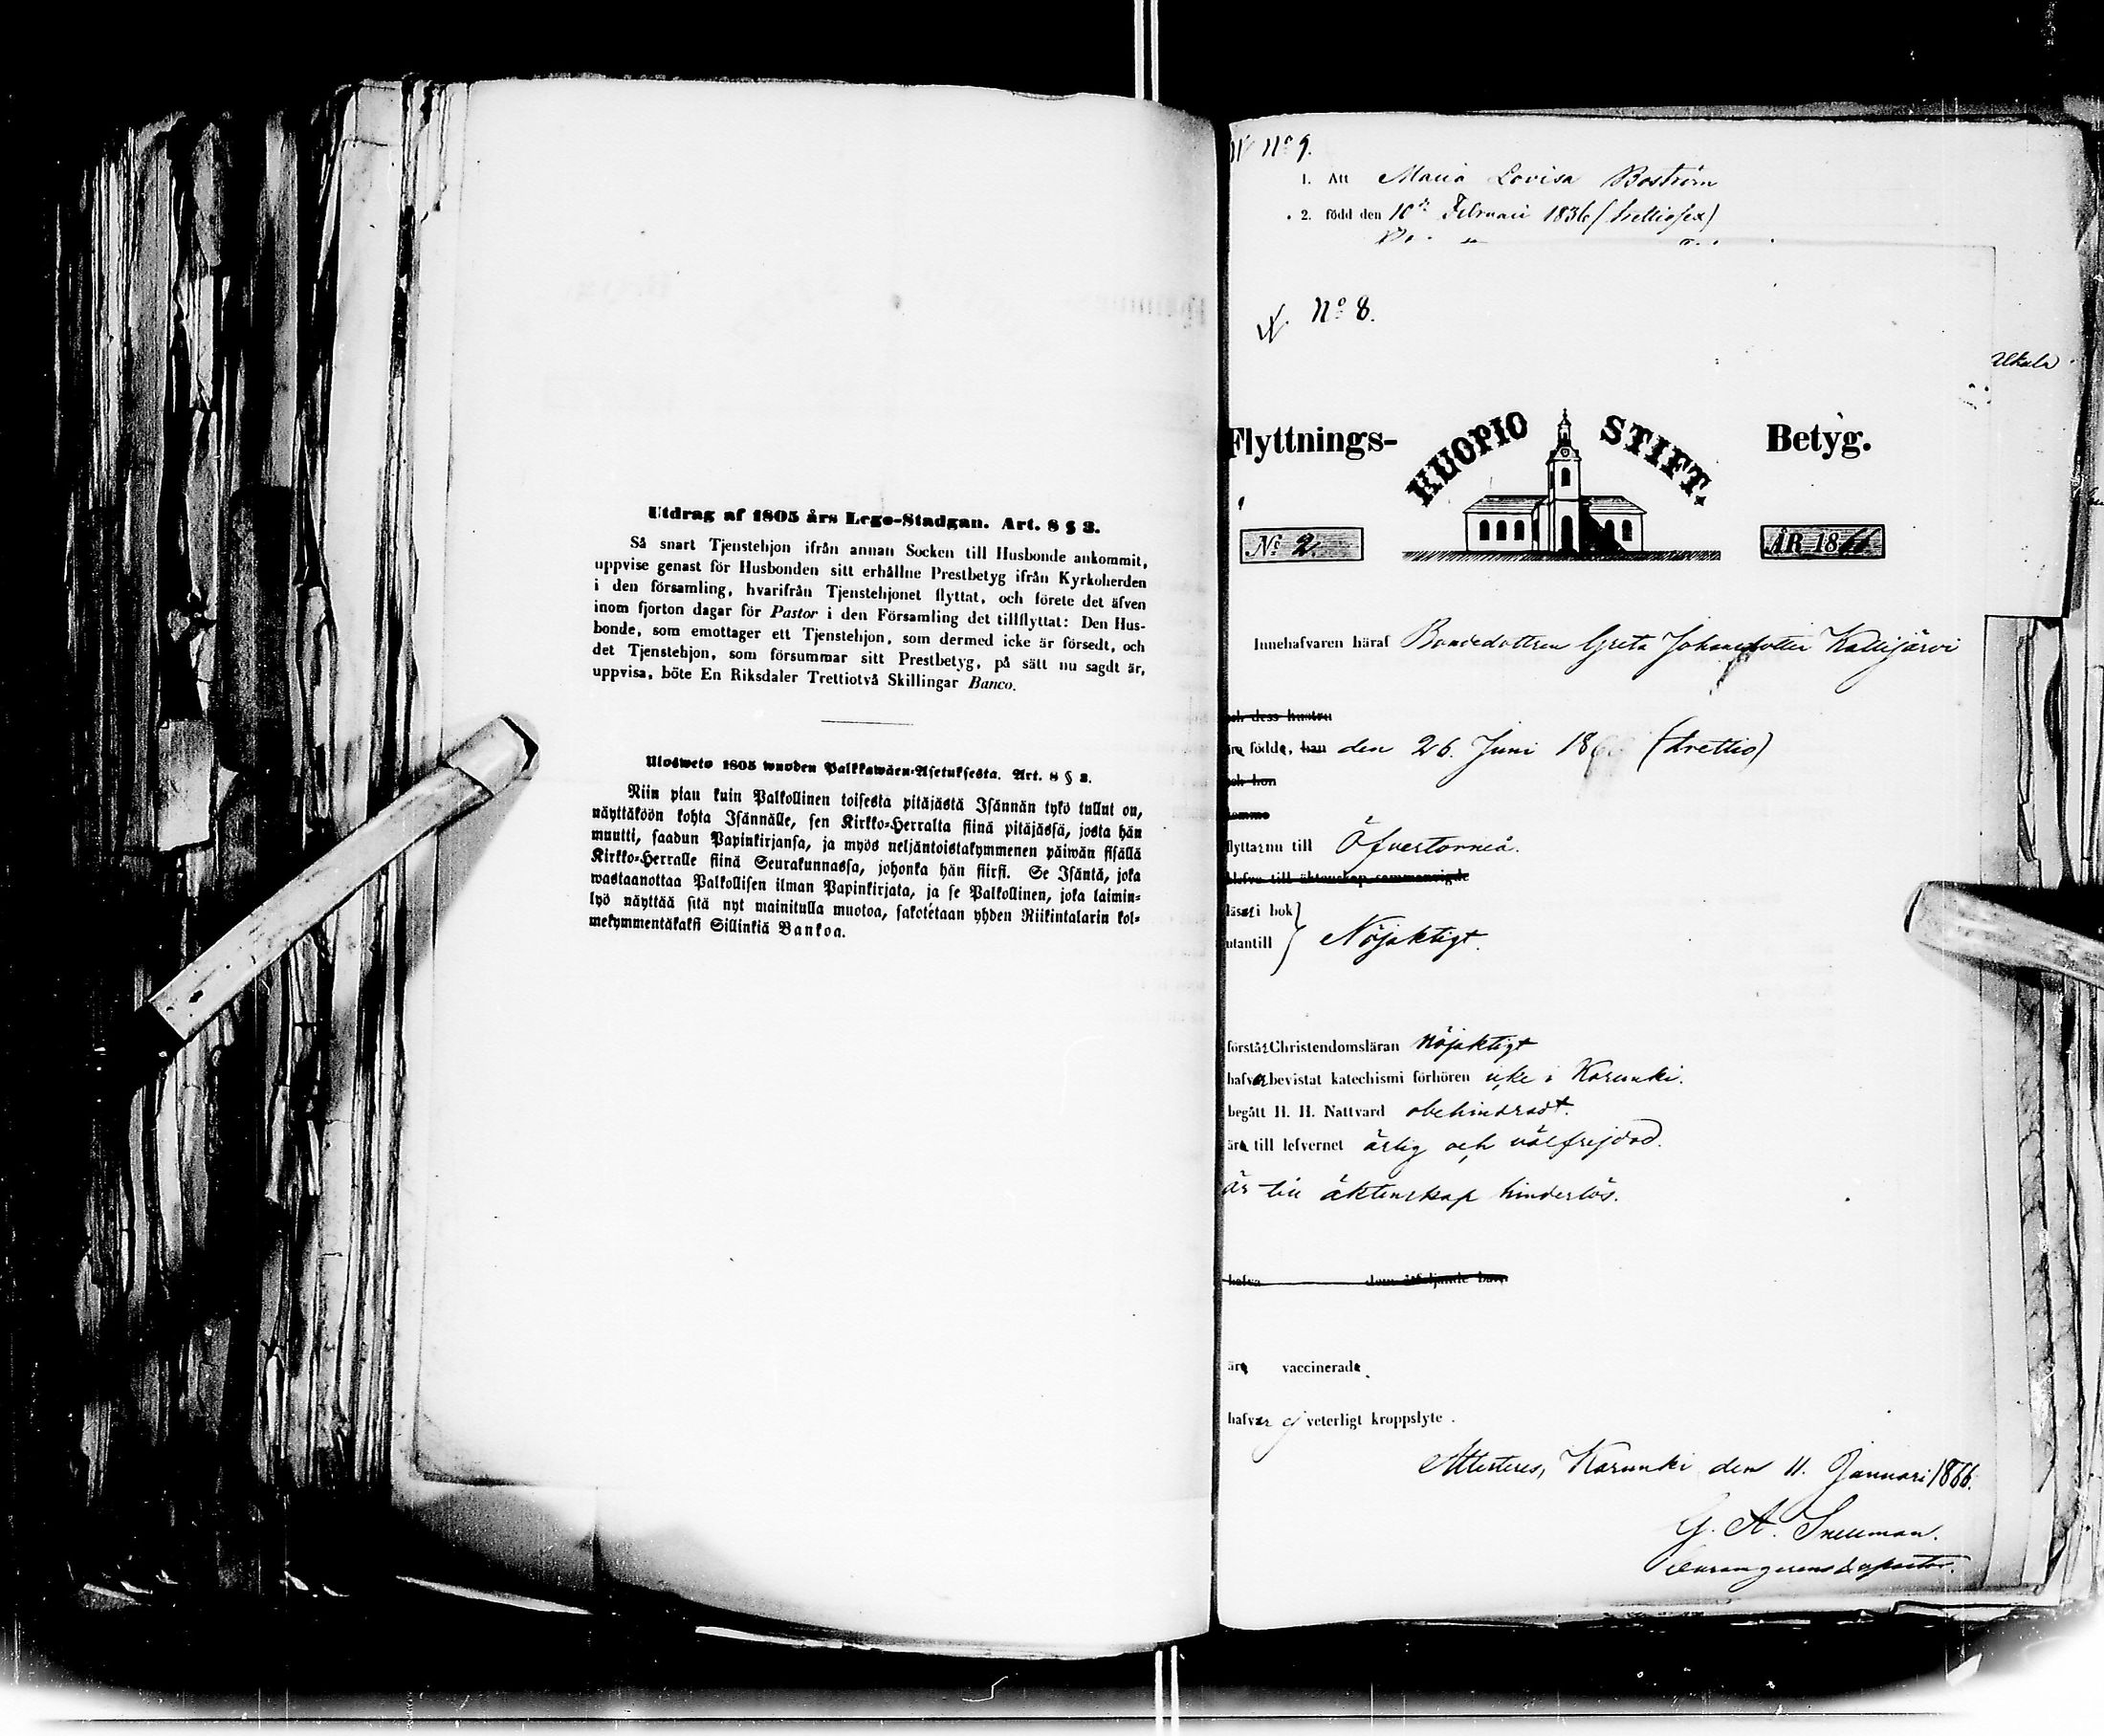 Utdrag af 1805 års Lego-Stadgan. Art. 8 § 3.
Så snart Tjenstehjon ifrån annan Socken till Husbonde ankommit,
uppvise genast för Husbonden sitt erhållne Prestbetyg ifrån Kyrkoherden
i den församling, hvarifrån Tjenstehjonet flyttat, och förete det äfven
inom fjorton dagar för Pastor i den Församling det tillflyttat: Den Hus-
bonde, som emottager ett Tjenstehjon, som dermed icke är försedt, och
det Tjenstehjon, som försummar sitt Prestbetyg, på sätt nu sagdt är,
uppvisa, böte En Riksdaler Trettiotvå Skillingar Banco.
Ulosweto 1805 wuoden Palkkawäen-Asetuksesta. Art. 8 § 3.
Niin pian kuin Palkollinen toisesta pitäjästä Isännän tykö tullut on,
näyttäköön kohta Isännälle, sen Kirkko-Herralta siinä pitäjässä, josta hän
muutti, saadun Papinkirjansa, ja myös neljäntoistakymmenen päiwän sisällä
Kirkko-Herralle siinä Seurakunnassa, johonka hän siirsi. Se Isäntä, joka
wastaanottaa Palkollisen ilman Papinkirjata, ja se Palkollinen, joka laimin-
lyö näyttää sitä nyt mainitulla muotoa, sakotetaan yhden Riikintalarin kol-
mekymmentäkaksi Sillinkiä Bankoa.
No 9.
1. Att Maria Lovisa Boström
2. född den 10de Februari 1836 (trettiosex)
No 8.
Flyttnings- KUOPIO STIFT. Betyg.
No 2. ÅR 1866
Innehafvaren häraf Bondedottren Greta Johansdotter Kallijärvi
och dess hustru
äro födde, han den 26. Juni 18 (trettio)
och hon
komme
flyttar nu till Öfvertorneå.
läser i bok
utantill } Nöjaktigt.
förstår Christendomsläran nöjaktigt
hafver bevistat katechismi förhören icke i Karunki.
begått H. H. Nattvard obehindradt.
är till lefvernet ärlig och välfrejdad.
är till äktenskap hinderlös.
hafva dem åtföljande barn
äro vaccinerade
hafver ej veterligt kroppslyte.
Attesteres, Karunki den 11. Januari 1866.
G. A. Snellman.